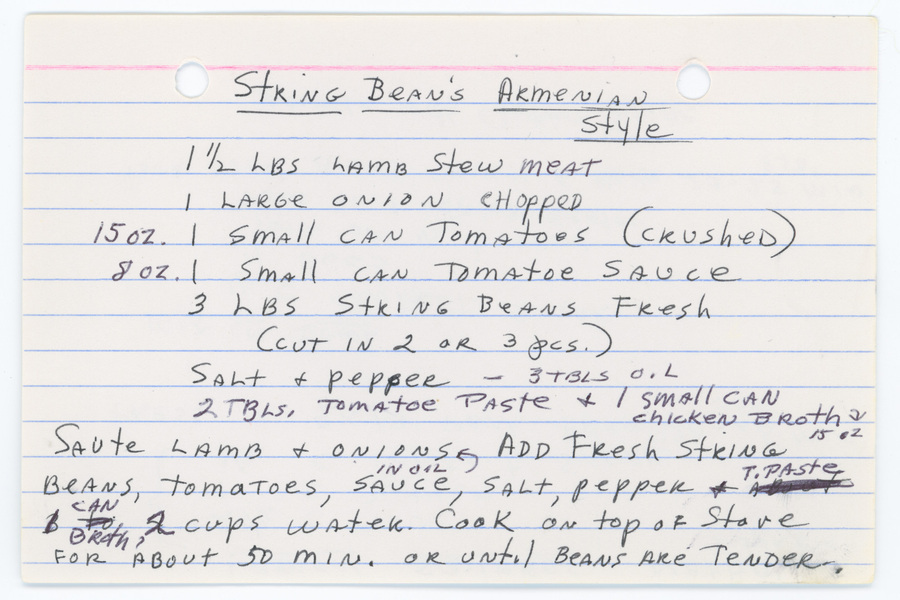 String Bean's Armenian
Style
1 1/2 LBS LAMB Stew MEAT
1 LARGE ONION CHOPPED
15 oz. 1 Small CAN TomAToes (CRUSHED)
8 oz. 1 Small CAN TomAToe SAUCE
3 LBS StRING BEANS FResh
(CUT IN 2 OR 3 pcs.)
SALT + pepper - 3 TBLS OIL
2 TBLS. TOMATOE PASTE + 1 SMALL CAN
chicken BROTH
15 oz
SAUte LAMB + ONIONS ADD FResh StRING
IN OIL
BEANS, tomAtoes, SAUCE, SALT, pepper + T. PASTE
1 CAN BRoth, 2 cups WATER. Cook on top of Stove
FOR ABOUT 50 MIN. OR until BEANS ARE TENDER.